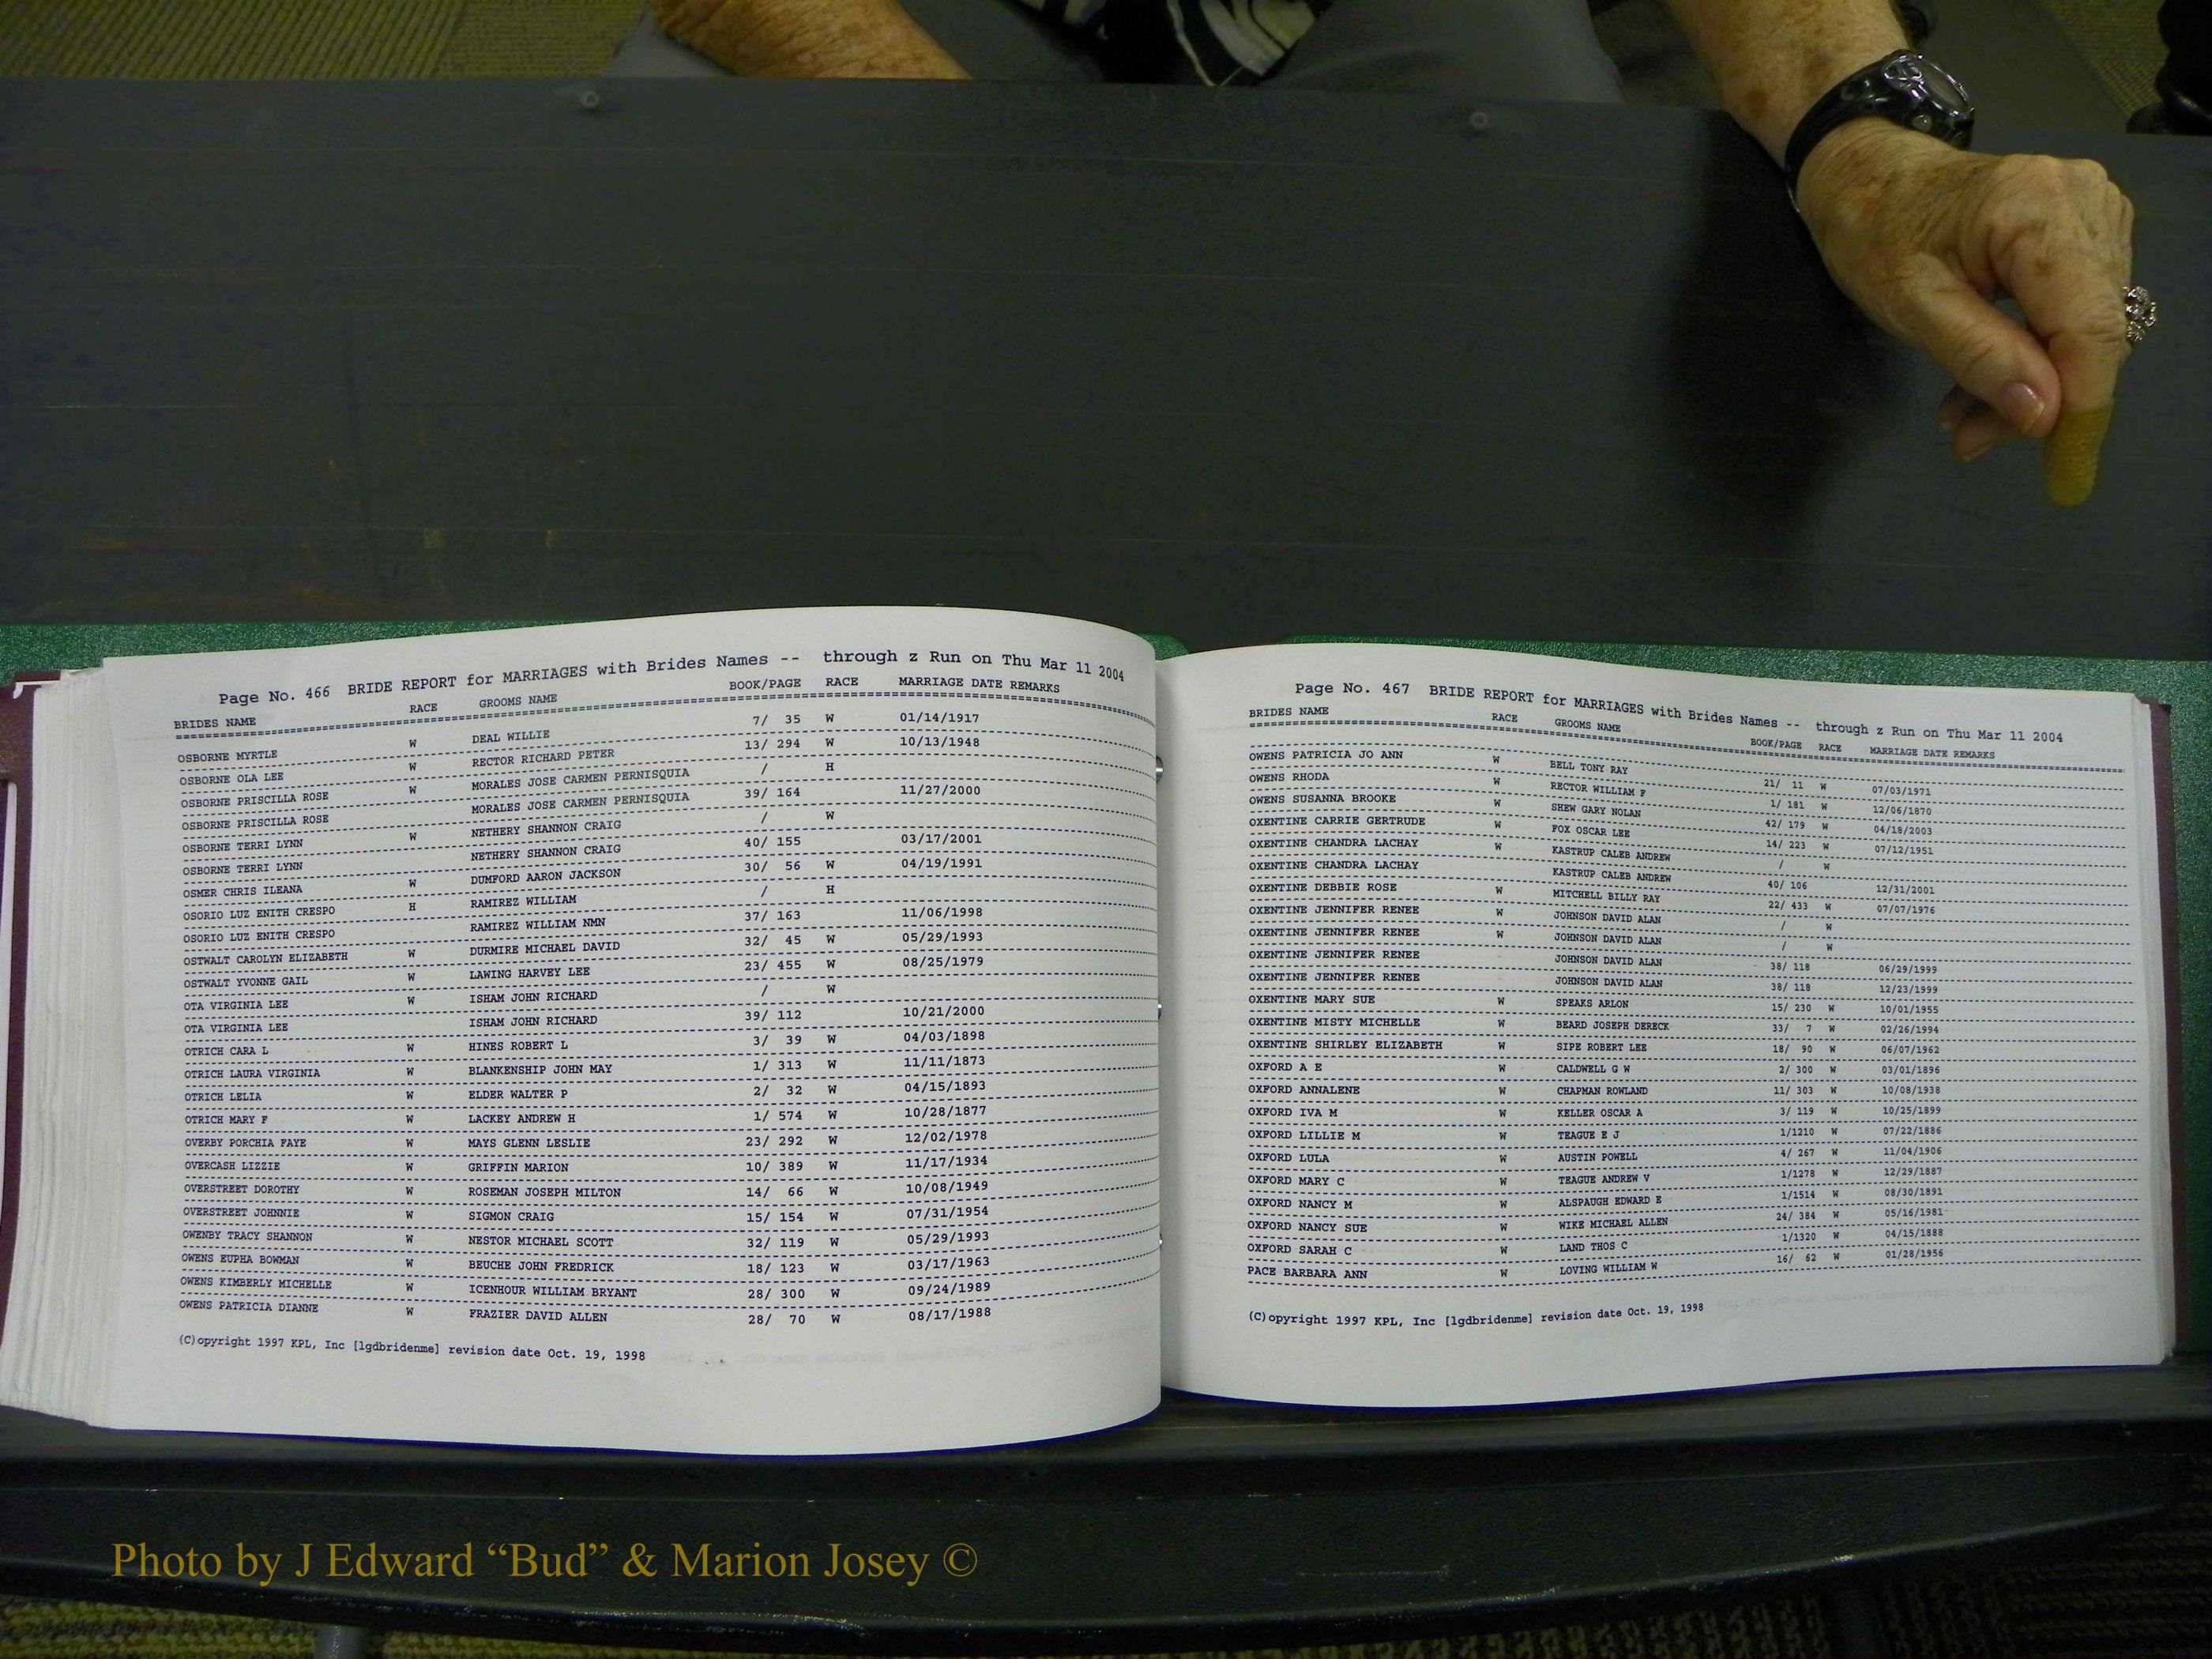 Page No. 466 BRIDE REPORT for MARRIAGES with Brides Names -- through z Run on Thu Mar 11 2004
BRIDES NAME RACE GROOMS NAME BOOK/PAGE RACE MARRIAGE DATE REMARKS
OSBORNE MYRTLE W DEAL WILLIE 7/ 35 W 01/14/1917
OSBORNE OLA LEE W RECTOR RICHARD PETER 13/ 294 W 10/13/1948
OSBORNE PRISCILLA ROSE W MORALES JOSE CARMEN PERNISQUIA / H
OSBORNE PRISCILLA ROSE MORALES JOSE CARMEN PERNISQUIA 39/ 164 11/27/2000
OSBORNE TERRI LYNN W NETHERY SHANNON CRAIG / W
OSBORNE TERRI LYNN NETHERY SHANNON CRAIG 40/ 155 03/17/2001
OSMER CHRIS ILEANA W DUMFORD AARON JACKSON 30/ 56 W 04/19/1991
OSORIO LUZ ENITH CRESPO H RAMIREZ WILLIAM / H
OSORIO LUZ ENITH CRESPO RAMIREZ WILLIAM NMN 37/ 163 11/06/1998
OSTWALT CAROLYN ELIZABETH W DURMIRE MICHAEL DAVID 32/ 45 W 05/29/1993
OSTWALT YVONNE GAIL W LAWING HARVEY LEE 23/ 455 W 08/25/1979
OTA VIRGINIA LEE W ISHAM JOHN RICHARD / W
OTA VIRGINIA LEE ISHAM JOHN RICHARD 39/ 112 10/21/2000
OTRICH CARA L W HINES ROBERT L 3/ 39 W 04/03/1898
OTRICH LAURA VIRGINIA W BLANKENSHIP JOHN MAY 1/ 313 W 11/11/1873
OTRICH LELIA W ELDER WALTER P 2/ 32 W 04/15/1893
OTRICH MARY F W LACKEY ANDREW H 1/ 574 W 10/28/1877
OVERBY PORCHIA FAYE W MAYS GLENN LESLIE 23/ 292 W 12/02/1978
OVERCASH LIZZIE W GRIFFIN MARION 10/ 389 W 11/17/1934
OVERSTREET DOROTHY W ROSEMAN JOSEPH MILTON 14/ 66 W 10/08/1949
OVERSTREET JOHNNIE W SIGMON CRAIG 15/ 154 W 07/31/1954
OWENBY TRACY SHANNON W NESTOR MICHAEL SCOTT 32/ 119 W 05/29/1993
OWENS EUPHA BOWMAN W BEUCHE JOHN FREDRICK 18/ 123 W 03/17/1963
OWENS KIMBERLY MICHELLE W ICENHOUR WILLIAM BRYANT 28/ 300 W 09/24/1989
OWENS PATRICIA DIANNE W FRAZIER DAVID ALLEN 28/ 70 W 08/17/1988
(C)opyright 1997 KPL, Inc [lgdbridenme] revision date Oct. 19, 1998
Page No. 467 BRIDE REPORT for MARRIAGES with Brides Names -- through z Run on Thu Mar 11 2004
BRIDES NAME RACE GROOMS NAME BOOK/PAGE RACE MARRIAGE DATE REMARKS
OWENS PATRICIA JO ANN W BELL TONY RAY 21/ 11 W 07/03/1971
OWENS RHODA W RECTOR WILLIAM F 1/ 181 W 12/06/1870
OWENS SUSANNA BROOKE W SHEW GARY NOLAN 42/ 179 W 04/18/2003
OXENTINE CARRIE GERTRUDE W FOX OSCAR LEE 14/ 223 W 07/12/1951
OXENTINE CHANDRA LACHAY W KASTRUP CALEB ANDREW / W
OXENTINE CHANDRA LACHAY KASTRUP CALEB ANDREW 40/ 106 12/31/2001
OXENTINE DEBBIE ROSE W MITCHELL BILLY RAY 22/ 433 W 07/07/1976
OXENTINE JENNIFER RENEE W JOHNSON DAVID ALAN / W
OXENTINE JENNIFER RENEE W JOHNSON DAVID ALAN / W
OXENTINE JENNIFER RENEE JOHNSON DAVID ALAN 38/ 118 06/29/1999
OXENTINE JENNIFER RENEE JOHNSON DAVID ALAN 38/ 118 12/23/1999
OXENTINE MARY SUE W SPEAKS ARLON 15/ 230 W 10/01/1955
OXENTINE MISTY MICHELLE W BEARD JOSEPH DERECK 33/ 7 W 02/26/1994
OXENTINE SHIRLEY ELIZABETH W SIPE ROBERT LEE 18/ 90 W 06/07/1962
OXFORD A E W CALDWELL G W 2/ 300 W 03/01/1896
OXFORD ANNALENE W CHAPMAN ROWLAND 11/ 303 W 10/08/1938
OXFORD IVA M W KELLER OSCAR A 3/ 119 W 10/25/1899
OXFORD LILLIE M W TEAGUE E J 1/1210 W 07/22/1886
OXFORD LULA W AUSTIN POWELL 4/ 267 W 11/04/1906
OXFORD MARY C W TEAGUE ANDREW V 1/1278 W 12/29/1887
OXFORD NANCY M W ALSPAUGH EDWARD E 1/1514 W 08/30/1891
OXFORD NANCY SUE W WIKE MICHAEL ALLEN 24/ 384 W 05/16/1981
OXFORD SARAH C W LAND THOS C 1/1320 W 04/15/1888
PACE BARBARA ANN W LOVING WILLIAM W 16/ 62 W 01/28/1956
(C)opyright 1997 KPL, Inc [lgdbridenme] revision date Oct. 19, 1998
Photo by J Edward “Bud” & Marion Josey ©